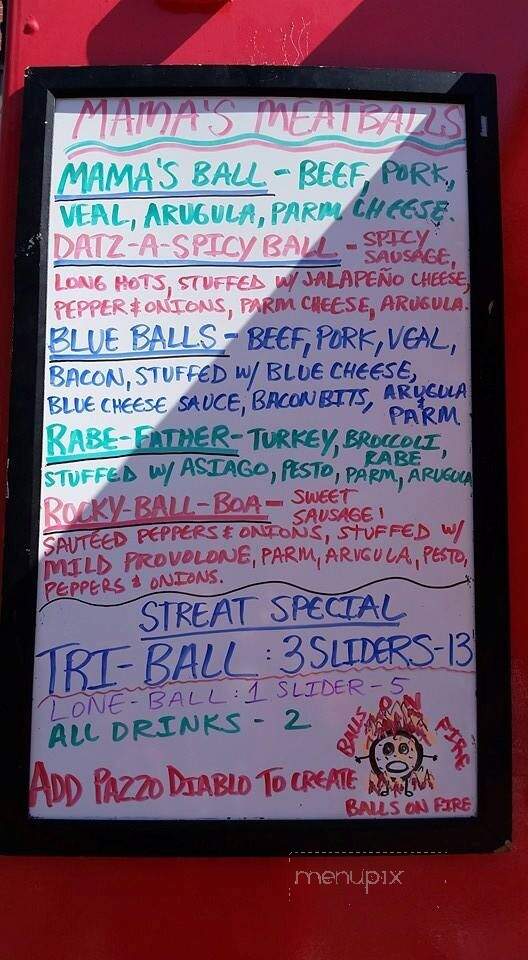 MAMA'S MEATBALLS
MAMA'S BALL - BEEF, PORK,
VEAL, ARUGULA, PARM CHEESE.
DATZ-A-SPICY BALL - SPICY SAUSAGE,
LONG HOTS, STUFFED W/ JALAPEÑO CHEESE,
PEPPER & ONIONS, PARM CHEESE, ARUGULA.
BLUE BALLS - BEEF, PORK, VEAL,
BACON, STUFFED W/ BLUE CHEESE,
BLUE CHEESE SAUCE, BACON BITS, ARUGULA & PARM
RABE-FATHER - TURKEY, BROCCOLI RABE
STUFFED W/ ASIAGO, PESTO, PARM, ARUGULA
ROCKY-BALL-BOA - SWEET SAUSAGE,
SAUTÉED PEPPERS & ONIONS, STUFFED W/
MILD PROVOLONE, PARM, ARUGULA, PESTO,
PEPPERS & ONIONS.
STREAT SPECIAL
TRI-BALL : 3 SLIDERS - 13
LONE-BALL : 1 SLIDER - 5
ALL DRINKS - 2
BALLS ON FIRE
ADD PAZZO DIABLO TO CREATE
BALLS ON FIRE
menupix